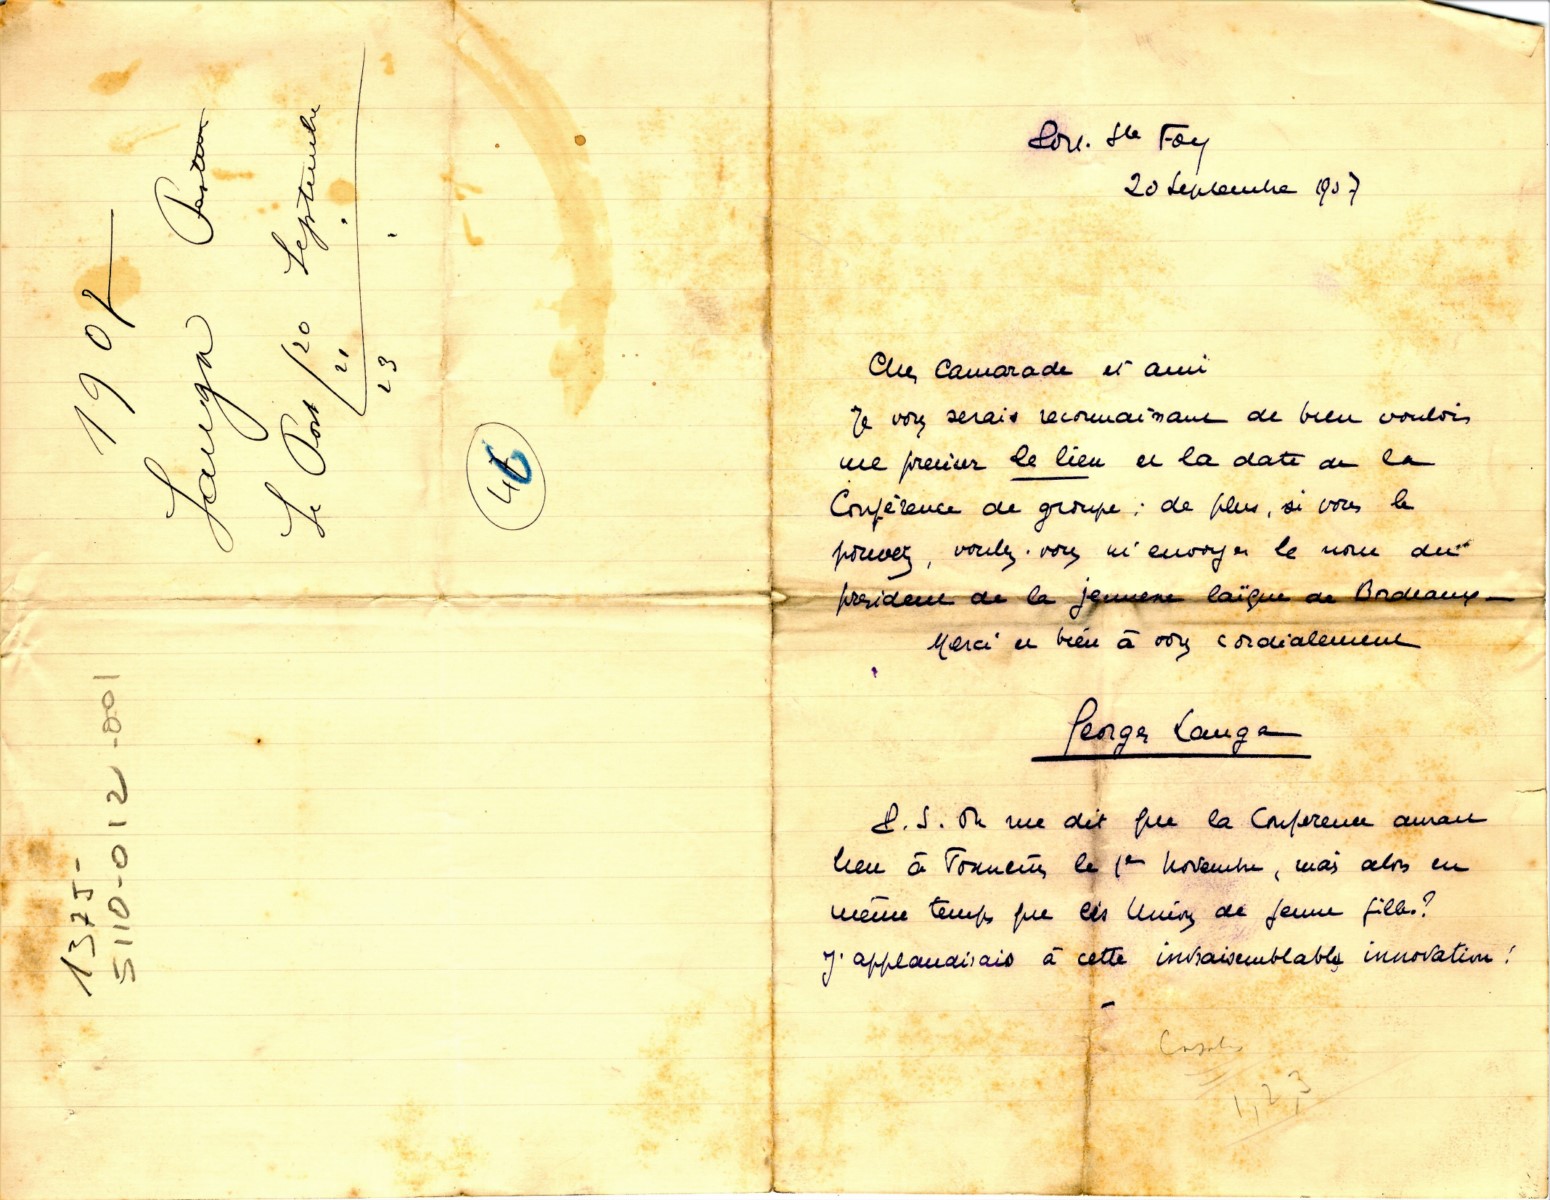 1907
Lauga Pasteur
Le Port / 20 Septembre
21
23
46
1375-
5110-012-001
Port. Ste Foy
20 Septembre 1907
Cher Camarade et ami
Je vous serais reconnaissant de bien vouloir
me préciser le lieu et la date de la
Conférence de groupe ; de plus, si vous le
pouvez, voulez-vous m'envoyer le nom du
président de la jeunesse laïque de Bordeaux -
Merci et bien à vous cordialement
Georges Lauga
P.S. On me dit que la Conférence aurait
lieu à Tonneins le 1er novembre, mais alors en
même temps que les Unions de jeunes filles ?
J'applaudirais à cette invraisemblable innovation !
1, 2, 3